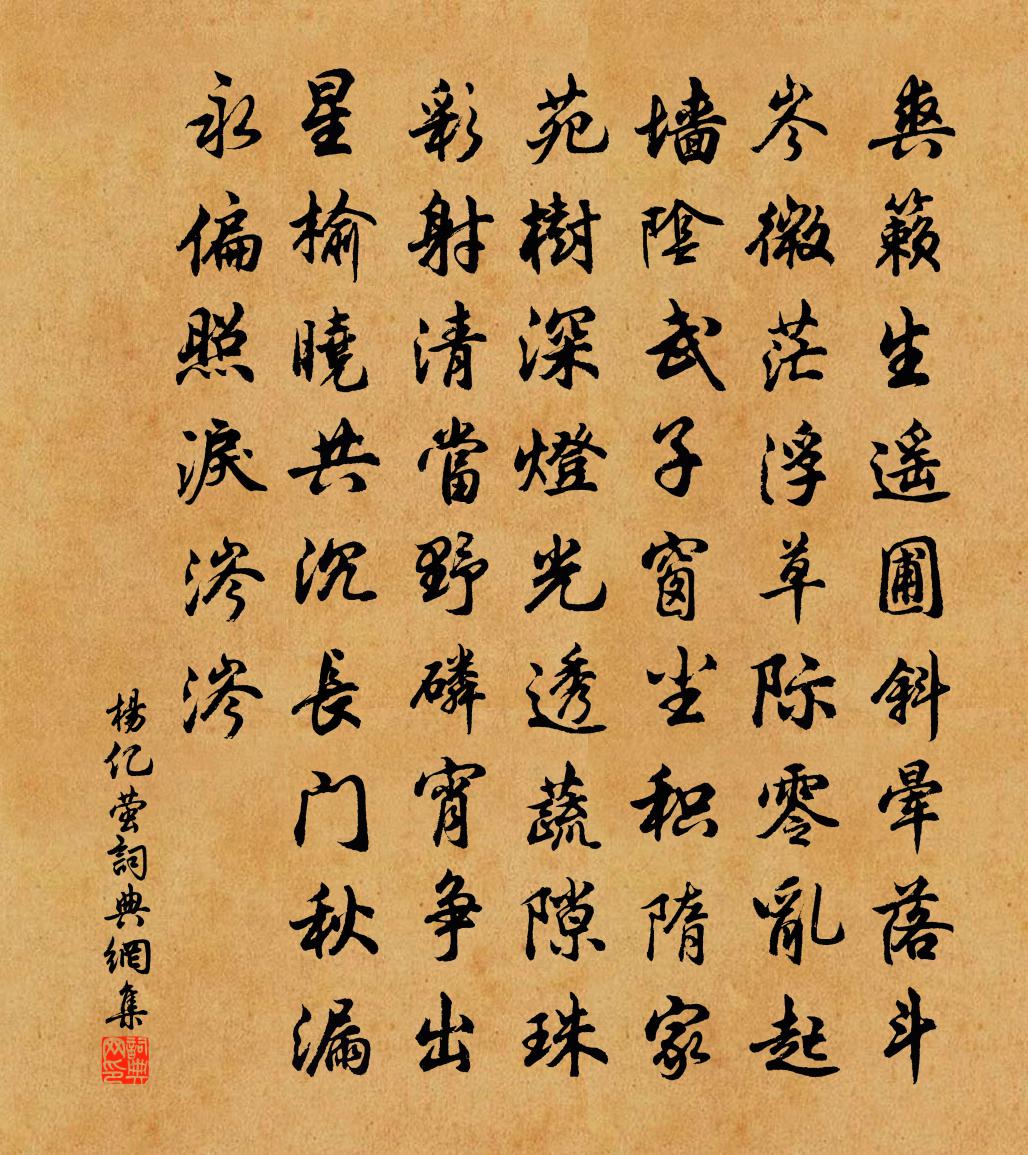 爽籟生遥圃斜暈落斗
岑微茫浮草际零亂起
墙陰武子窗尘积隋家
苑樹深燈光透蔬隙珠
彩射清當野磷宵争出
星榆曉共沉長门秋漏
永偏照淚涔涔
楊亿萤詞典網集
詞典网印